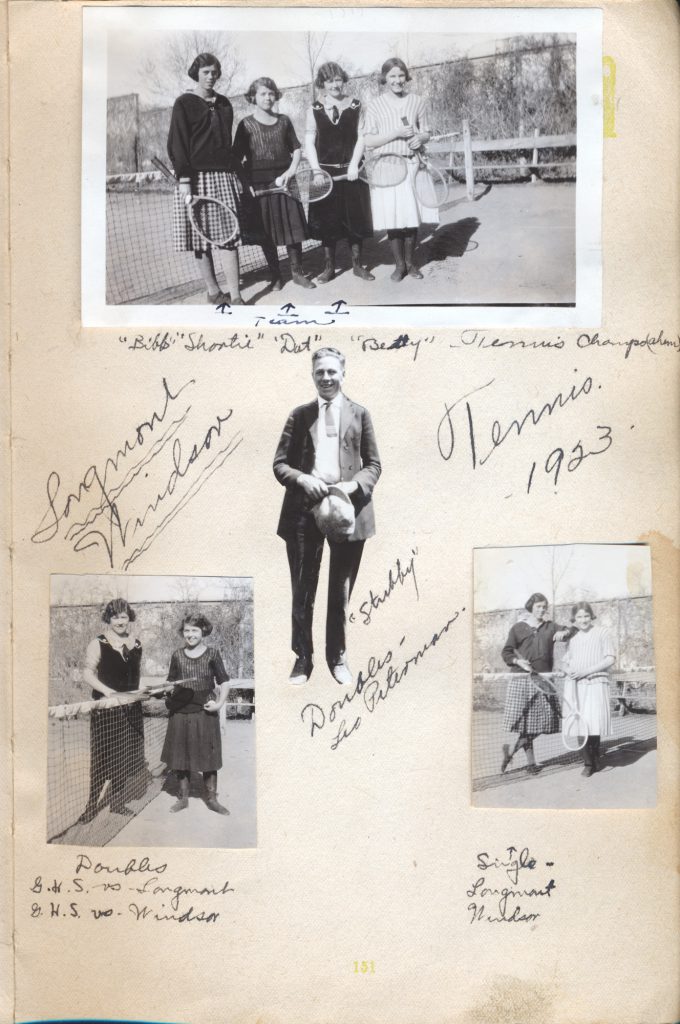 Team
"Bibb" "Shortie" "Dot" "Betty" - Tennis Champs (ahem)
Longmont
Windsor
Tennis.
1923.
"Stubby"
Doubles -
Leo Peterman.
Doubles
G.H.S. vs - Longmont
G.H.S. vs - Windsor
Single -
Longmont
Windsor
151